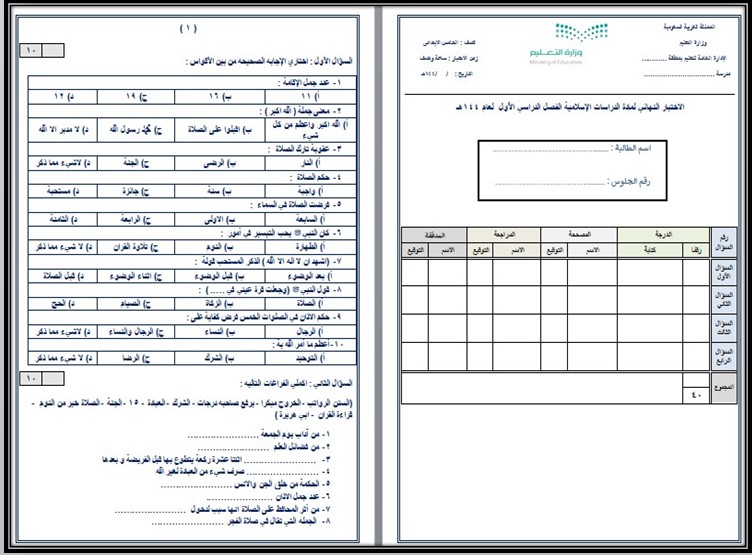 المملكة العربية السعودية
وزارة التعليم
الإدارة العامة للتعليم بمنطقة ............
مدرسة ........................
وزارة التعليم
Ministry of Education
الصف : الخامس الابتدائي
زمن الاختبار : ساعة ونصف
التاريخ : / / ١٤٤هـ
الاختبار النهائي لمادة الدراسات الإسلامية الفصل الدراسي الأول لعام ١٤٤ هـ
اسم الطالبة : ................................
رقم الجلوس : ................................
رقم السؤال الدرجة المصححة المراجعة المدققة
رقما كتابة الاسم التوقيع الاسم التوقيع الاسم التوقيع
السؤال الأول
السؤال الثاني
السؤال الثالث
السؤال الرابع
المجموع ٤٠
( ١ )
١٠
السؤال الأول : اختاري الإجابه الصحيحه من بين الأقواس :
١- عدد جمل الإقامة :
أ) ١١ ب) ١٦ ج) ١٩ د) ١٢
٢- معنى جملة ( الله اكبر ) :
أ) الله اكبر واعظم من كل شيء ب) اقبلوا على الصلاة ج) محمد رسول الله د) لا مدبر الا الله
٣- عقوبة تارك الصلاة :
أ) النار ب) الرضى ج) الجنة د) لاشيء مما ذكر
٤- حكم الصلاة :
أ) واجبة ب) سنة ج) جائزة د) مستحبة
٥- فرضت الصلاة في السماء :
أ) السابعة ب) الاولى ج) الرابعة د) الثامنة
٦- كان النبي ﷺ يحب التيسير في أمور :
أ) الطهارة ب) النوم ج) تلاوة القران د) لا شيء مما ذكر
٧- (اشهد ان لا اله الا الله ) الذكر المستحب قولة :
أ) بعد الوضوء ب) قبل الوضوء ج) اثناء الوضوء د) قبل الصلاة
٨- قول النبي ﷺ (وجعلت قرة عيني في ..... ) :
أ) الصلاة ب) الزكاة ج) الصيام د) الحج
٩- حكم الاذان في الصلوات الخمس فرض كفاية على :
أ) الرجال ب) النساء ج) الرجال والنساء د) لا شيء مما ذكر
١٠- أعظم ما أمر الله به :
أ) التوحيد ب) الشرك ج) الرضا د) لا شيء مما ذكر
١٠
السؤال الثاني : اكملي الفراغات التاليه :
(السنن الرواتب - الخروج مبكرا - يرفع صاحبه درجات - الشرك - العبادة - ١٥ - الجنة - الصلاة خير من النوم -
قراءة القران - ابي هريرة )
١- من آداب يوم الجمعة ........................
٢- من فضائل العلم ........................
٣- ........................ اثنتا عشرة ركعة يتطوع بها قبل الفريضة و بعدها
٤- ........................ صرف شيء من العبادة لغير الله
٥- الحكمة من خلق الجن والانس ........................
٦- عدد جمل الاذان ........................
٧- من أثر المحافظ على الصلاة انها سبب لدخول ........................
٨- الجمله التي تقال في صلاة الفجر ........................